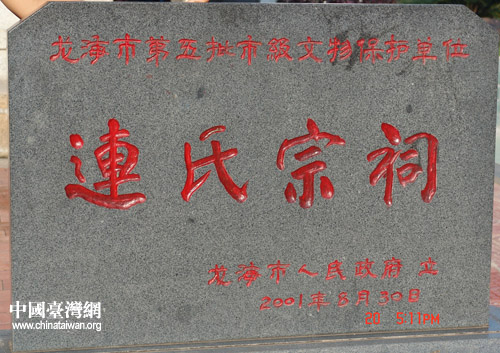 龙海市第五批市级文物保护单位
連氏宗祠
龙海市人民政府 立
2001年8月30日
中國臺灣網
www.chinataiwan.org